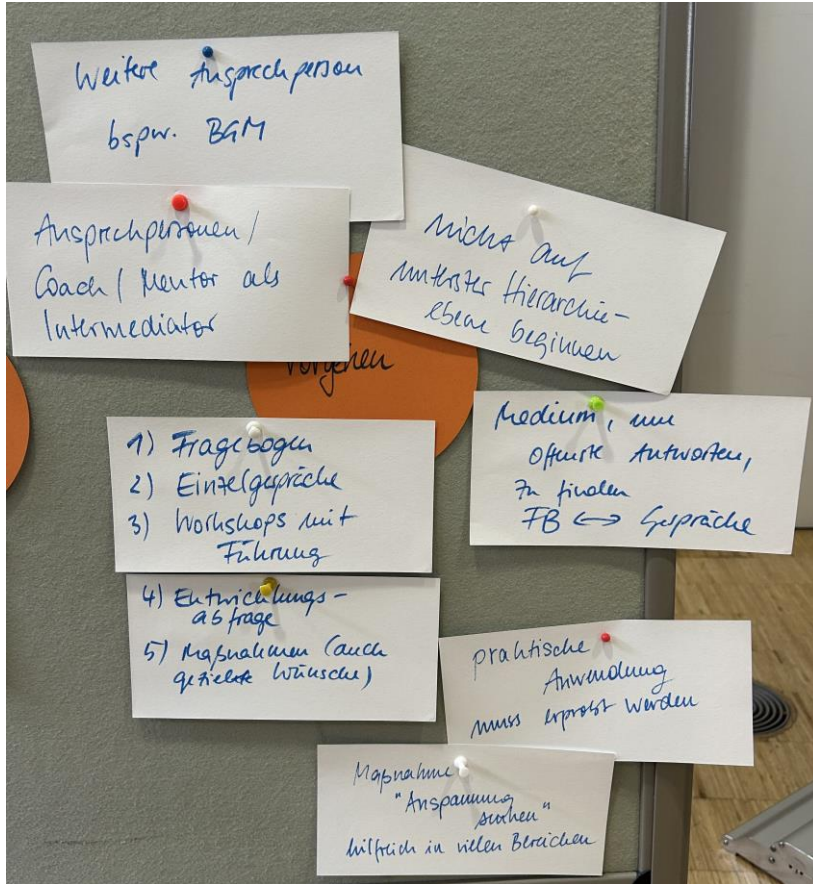 Weitere Ansprechperson
bspw. BGM
Ansprechpersonen/
Coach/Mentor als
Intermediator
nicht auf
unterster Hierarchie-
ebene beginnen
Vorgehen
1) Fragebogen
2) Einzelgespräche
3) Workshops mit
Führung
Medium, um
offenste Antworten,
zu finden
FB <-> Gespräche
4) Entwicklungs-
abfrage
5) Maßnahmen (auch
gezielte Wünsche)
praktische
Anwendung
muss erprobt werden
Maßnahme
"Anspannung
hilfreich in vielen Bereichen